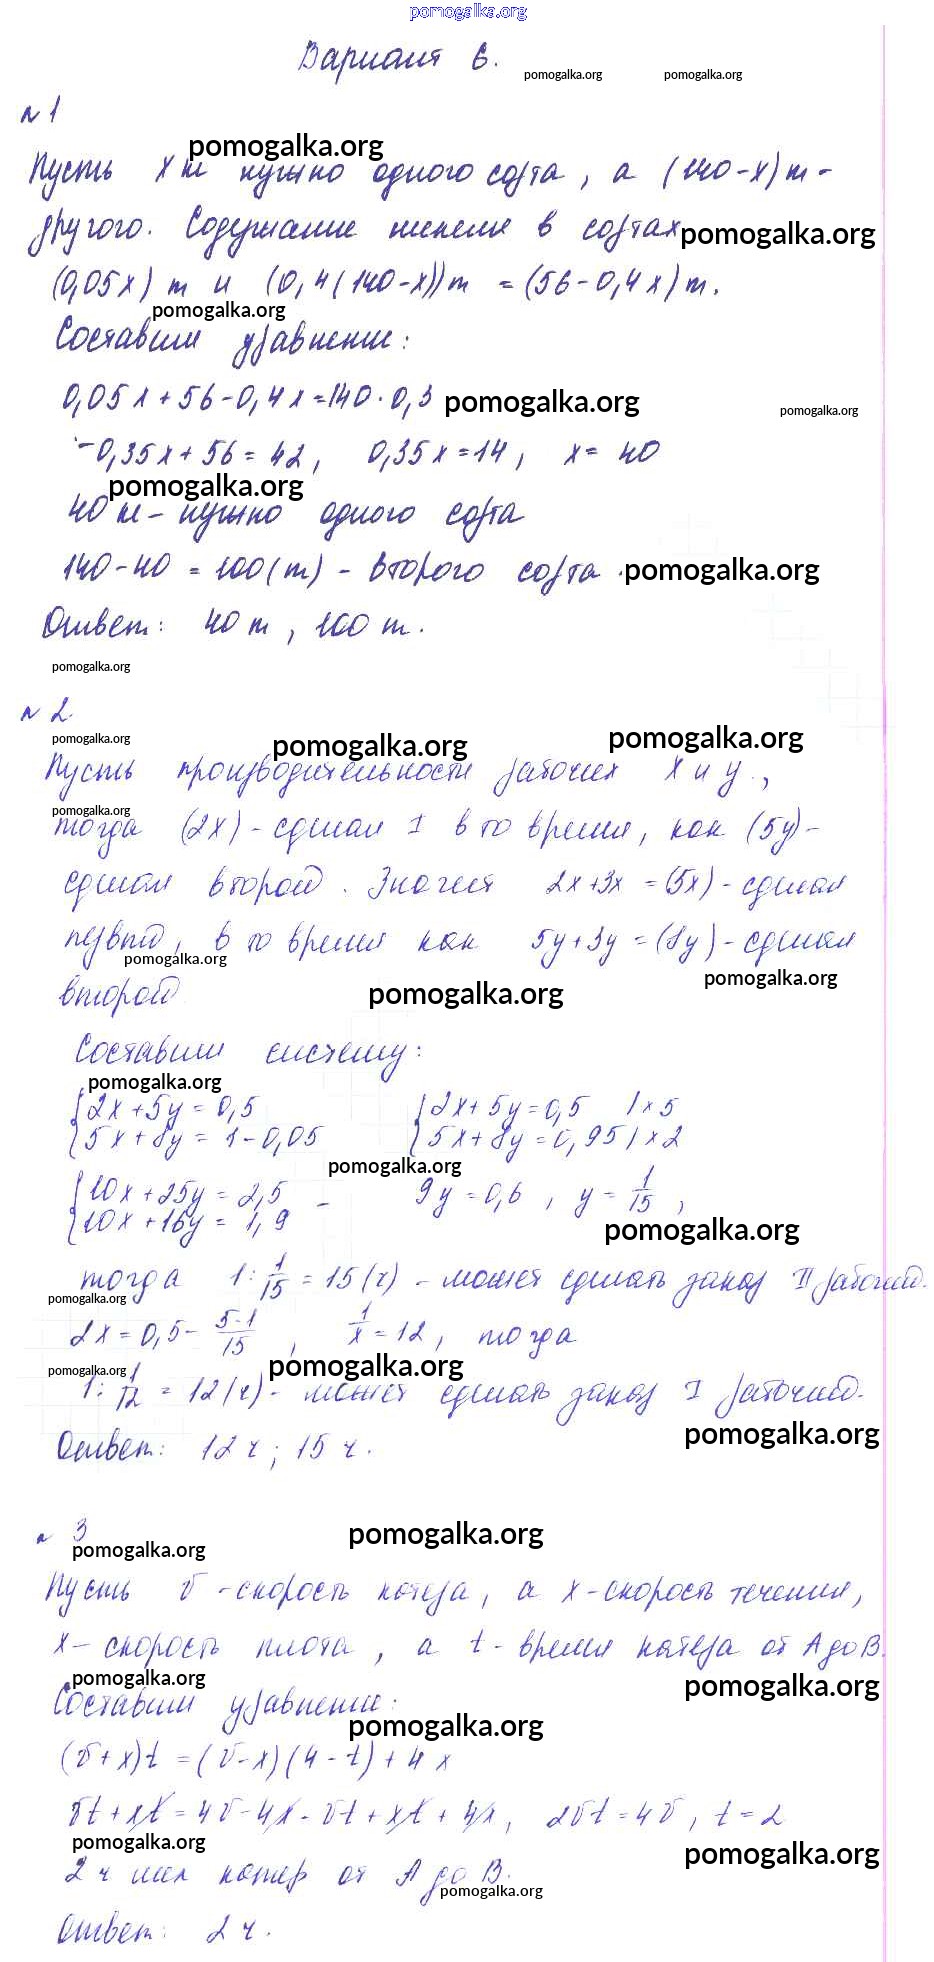 pomogalka.org
Вариант 6.
pomogalka.org pomogalka.org
№1
pomogalka.org
Пусть х т нужно одного сорта, а (140-х)т-
другого. Содержание никеля в сортах
pomogalka.org
(0,05х) т и (0,4(140-х))т = (56-0,4х)т.
pomogalka.org
Составим уравнение:
0,05х+56-0,4х=140·0,3
pomogalka.org pomogalka.org
-0,35х+56=42, 0,35х=14, х=40
pomogalka.org
40 т - нужно одного сорта
140-40=100(т) - второго сорта.
pomogalka.org
Ответ: 40 т, 100 т.
pomogalka.org
№2.
pomogalka.org pomogalka.org pomogalka.org
Пусть производительности рабочих х и у,
pomogalka.org
тогда (2х)-сделал I в то время, как (5у)-
сделал второй. Значит 2х+3х=(5х)-сделал
первый, в то время как 5у+3у=(8у)-сделал
pomogalka.org pomogalka.org
второй
pomogalka.org
Составим систему:
pomogalka.org
{2х+5у=0,5 {2х+5у=0,5 |×5
{5х+8у=1-0,05 {5х+8у=0,95 |×2
pomogalka.org
{10х+25у=2,5 - 9у=0,6, у=1/15,
{10х+16у=1,9
pomogalka.org
тогда 1:1/15=15(ч)-может сделать заказ II рабочий.
pomogalka.org
2х=0,5-5·1/15, 1/х=12, тогда
pomogalka.org pomogalka.org
1:1/12=12(ч)-может сделать заказ I рабочий.
pomogalka.org
Ответ: 12 ч; 15 ч.
№3
pomogalka.org pomogalka.org
Пусть v-скорость катера, а х-скорость течения,
х-скорость плота, а t-время катера от А до В.
pomogalka.org pomogalka.org
Составим уравнение:
pomogalka.org
(v+х)t=(v-х)(4-t)+4х
vt+хt=4v-4х-vt+хt+4х, 2vt=4v, t=2
pomogalka.org pomogalka.org
2 ч шел катер от А до В.
pomogalka.org
Ответ: 2 ч.